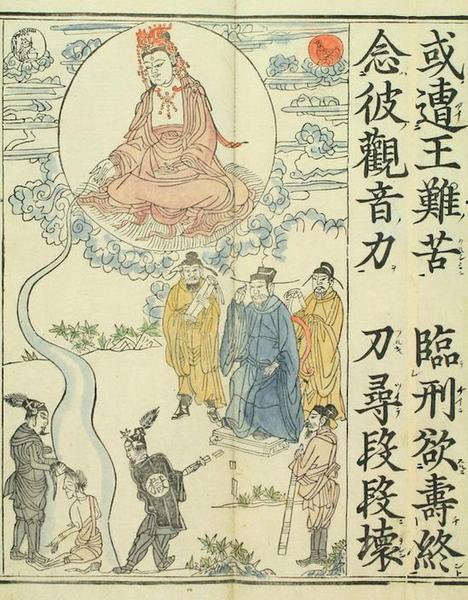 或遭王難苦 臨刑欲壽終
念彼觀音力 刀尋段段壞